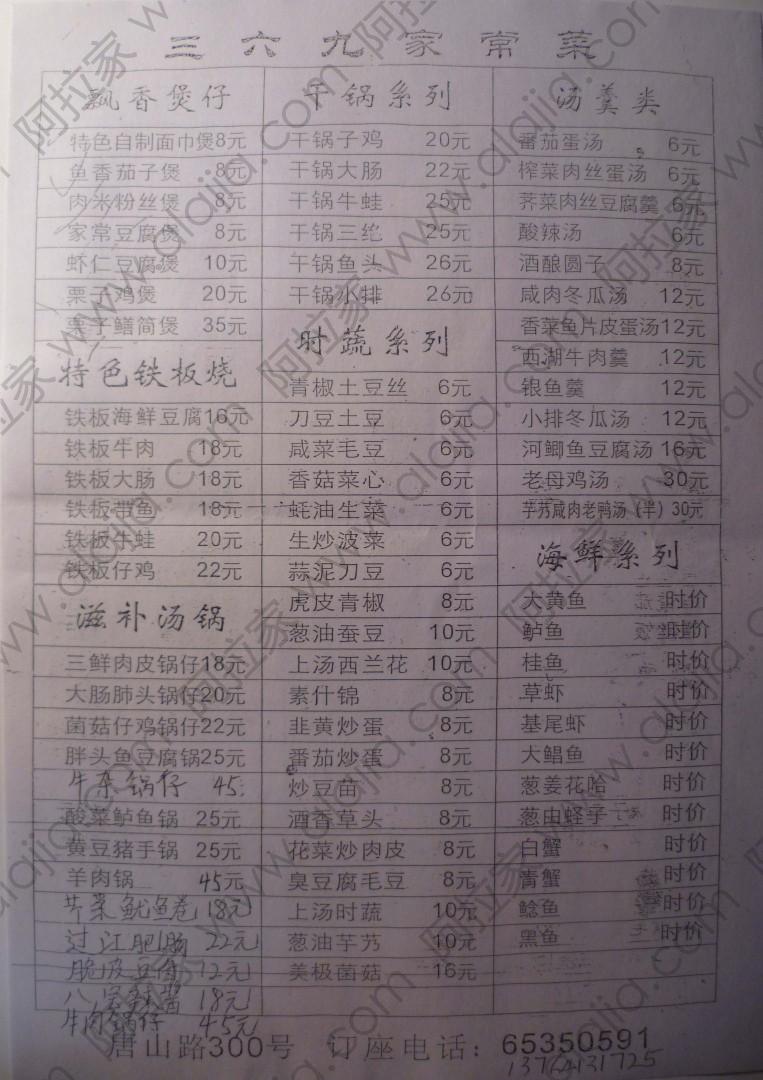 三六九家常菜
飘香煲仔
特色自制面巾煲8元
鱼香茄子煲 8元
肉米粉丝煲 8元
家常豆腐煲 8元
虾仁豆腐煲 10元
栗子鸡煲 20元
栗子鳝筒煲 35元
特色铁板烧
铁板海鲜豆腐16元
铁板牛肉 18元
铁板大肠 18元
铁板带鱼 18元
铁板牛蛙 20元
铁板仔鸡 22元
滋补汤锅
三鲜肉皮锅仔18元
大肠肺头锅仔20元
菌菇仔鸡锅仔22元
胖头鱼豆腐锅25元
牛杂锅仔 45
酸菜鲈鱼锅 25元
黄豆猪手锅 25元
羊肉锅 45元
芹菜鱿鱼卷 18元
过江肥肠 22元
脆皮豆角 12元
八宝辣酱 18元
牛肉锅仔 45元
干锅系列
干锅子鸡 20元
干锅大肠 22元
干锅牛蛙 25元
干锅三绝 25元
午锅鱼头 26元
干锅小排 26元
时蔬系列
青椒土豆丝 6元
刀豆土豆 6元
咸菜毛豆 6元
香菇菜心 6元
蚝油生菜 6元
生炒波菜 6元
蒜泥刀豆 6元
虎皮青椒 8元
葱油蚕豆 10元
上汤西兰花 10元
素什锦 8元
韭黄炒蛋 8元
番茄炒蛋 8元
炒豆苗 8元
酒香草头 8元
花菜炒肉皮 8元
臭豆腐毛豆 8元
上汤时蔬 10元
葱油芋艿 10元
美极菌菇 16元
汤羹类
番茄蛋汤 6元
榨菜肉丝蛋汤 6元
荠菜肉丝豆腐羹 6元
酸辣汤 6元
酒酿圆子 8元
咸肉冬瓜汤 12元
香菜鱼片皮蛋汤12元
西湖牛肉羹 12元
银鱼羹 12元
小排冬瓜汤 12元
河鲫鱼豆腐汤 16元
老母鸡汤 30元
芋艿咸肉老鸭汤（半）30元
海鲜系列
大黄鱼 时价
鲈鱼 时价
桂鱼 时价
草虾 时价
基尾虾 时价
大鲳鱼 时价
葱姜花哈 时价
葱由蛏子 时价
白蟹 时价
青蟹 时价
鲶鱼 时价
黑鱼 时价
唐山路300号 订座电话：65350591
13764131725
阿拉家 www.alajia.com